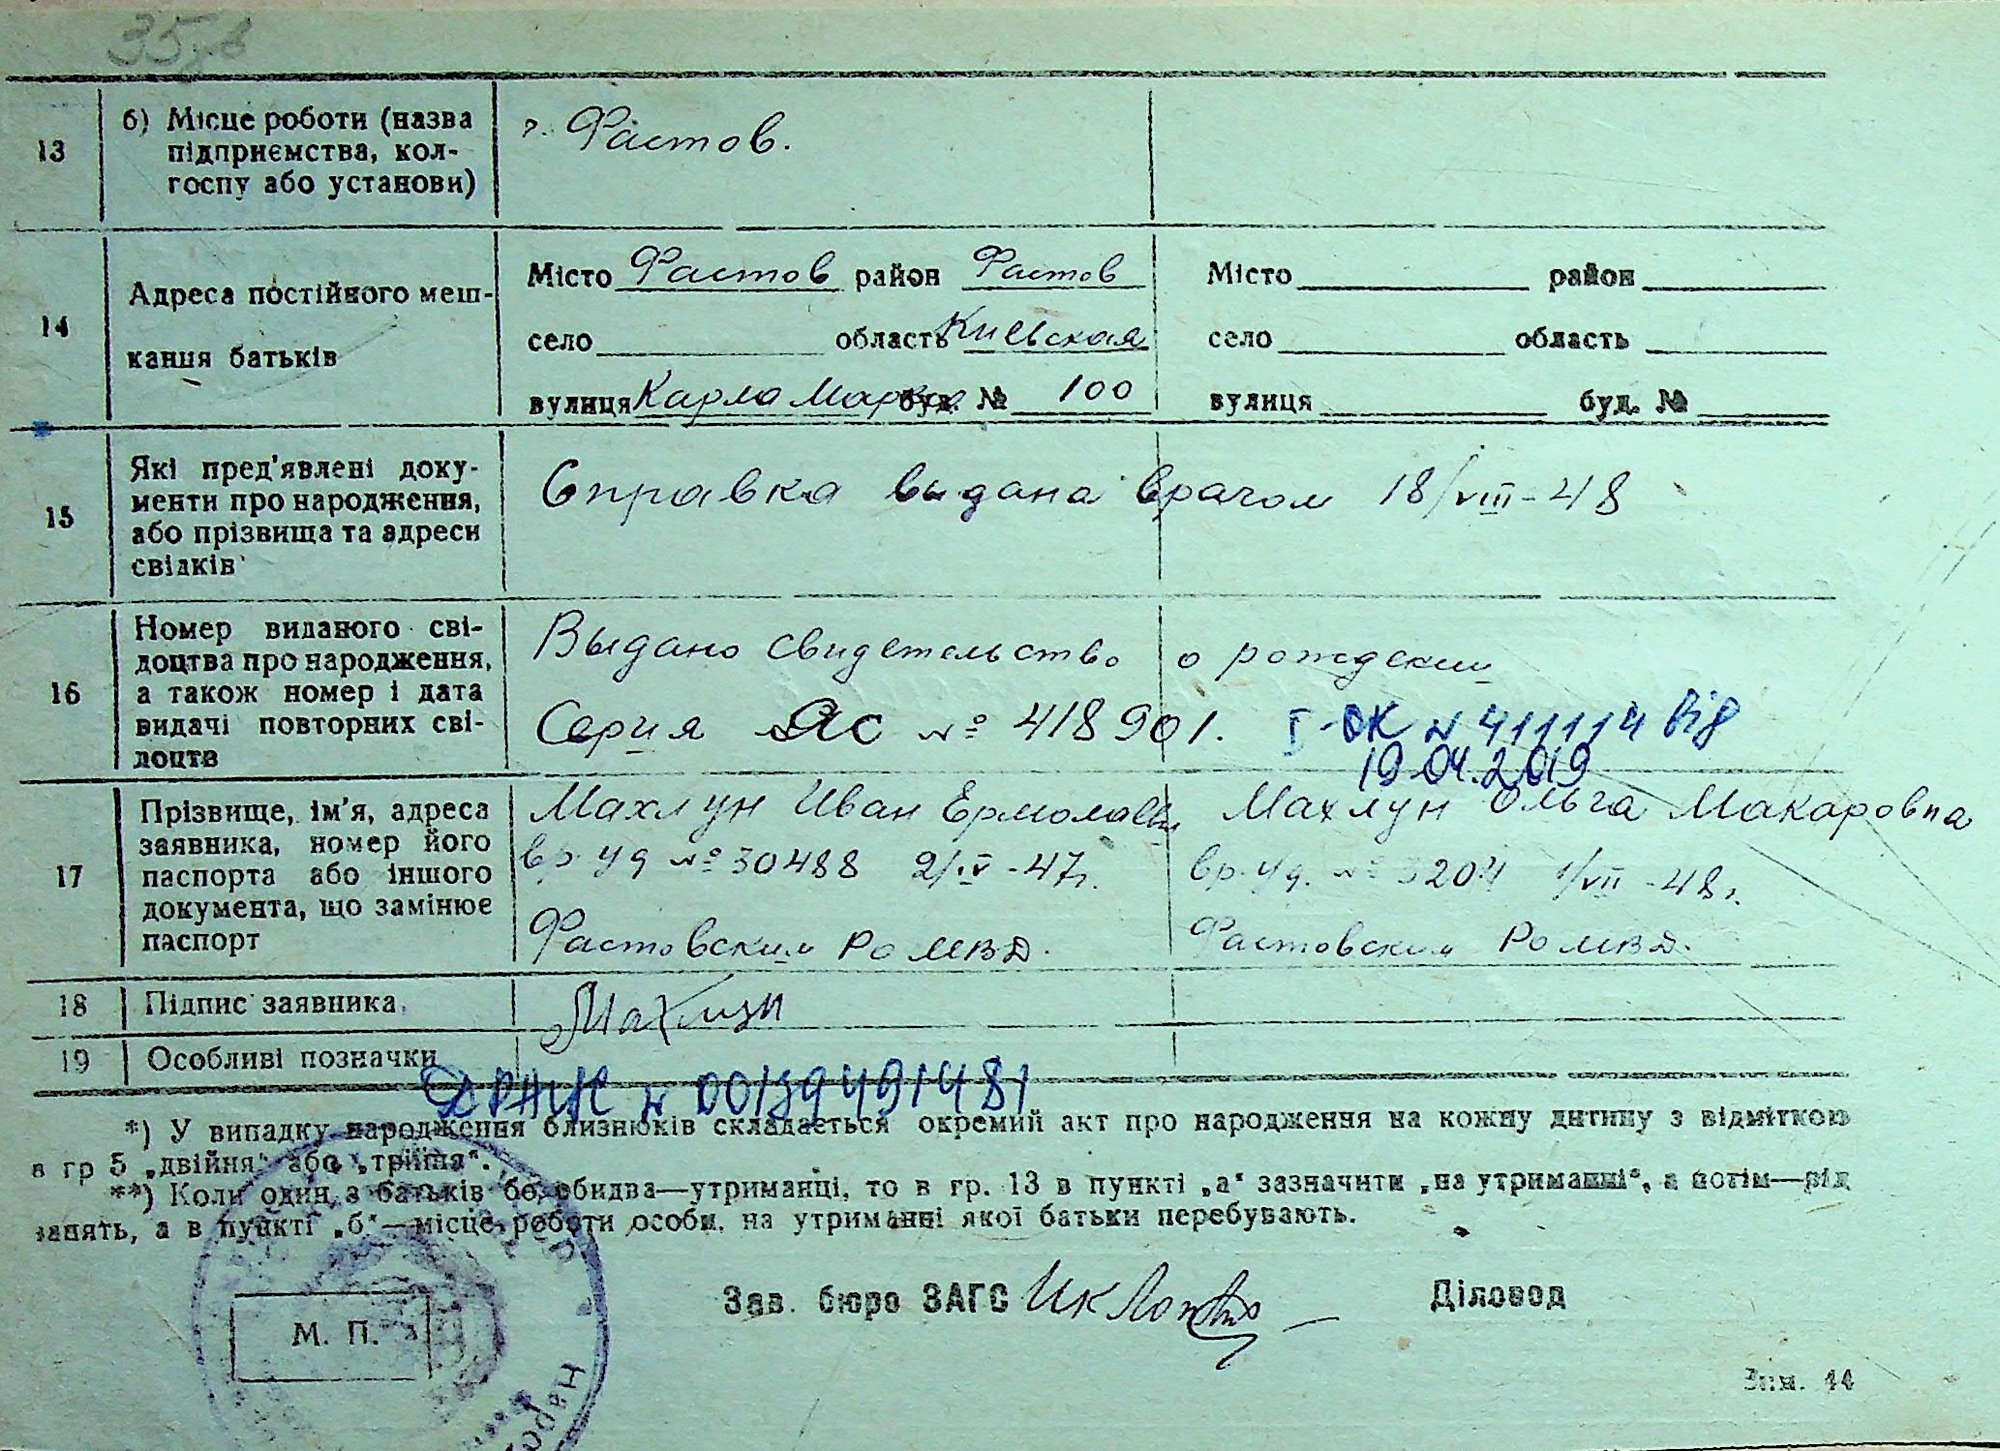 35
13
б) Місце роботи (назва
підприємства, кол-
госпу або установи)
г. Фастов.
14
Адреса постійного меш-
кання батьків
Місто Фастов район Фастов
село область Киевская
вулиця Карла Маркса буд. № 100
Місто район
село область
вулиця буд. №
15
Які пред'явлені доку-
менти про народження,
або прізвища та адреси
свідків
Справка выдана врачом 18/VIII-48
16
Номер виданого сві-
доцтва про народження,
а також номер і дата
видачі повторних сві-
доцтв
Выдано свидетельство о рождении
Серия ЯС № 418901. І-ОК № 411114 від
19.04.2019
17
Прізвище, ім'я, адреса
заявника, номер його
паспорта або іншого
документа, що замінює
паспорт
Махлун Иван Ермолаев
вр. уд № 30488 2/IV-47г.
Фастовским РО МВД.
Махлун Ольга Макаровна
вр. уд. № 3204 1/VII-48г.
Фастовским РО МВД.
18
Підпис заявника
Махлун
19
Особливі позначки
ДРАЦС № 00139491481
*) У випадку народження близнюків складається окремий акт про народження на кожну дитину з відміткою
в гр 5 „двійня“ або „трійня“.
**) Коли один з батьків бо обидва—утриманці, то в гр. 13 в пункті „а“ зазначити „на утриманні“, а потім—рід
занять, а в пункті „б“—місце роботи особи, на утриманні якої батьки перебувають.
Зав. бюро ЗАГС
Діловод
М. П.
Зам. 44